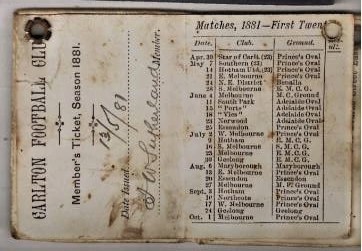 CARLTON FOOTBALL CLU
Member's Ticket, Season 1881.
Date Issued 13/5/81
Member.
Matches, 1881—First Twent
Date. Club. Ground.
Apr. 30 Star of Carlt. (23) Prince's Oval
May 7 Northern (23) Prince's Oval
14 Hotham U.A. (23) Prince's Oval
21 E. Melbourne Prince's Oval
24 N. E. District Benalla
28 S. Melbourne E. M. C. G.
June 4 Melbourne M. C. Ground
11 South Park Adelaide Oval
15 "Ports" Adelaide Oval
18 "Vics" Adelaide Oval
22 Norwood Adelaide Oval
25 Essendon Prince's Oval
July 2 W. Melbourne Prince's Oval
9 Hotham E. M. C. G.
16 S. Melbourne E. M. C. G.
23 Melbourne E. M. C. G.
30 Geelong E. M. C. G.
Aug. 6 Maryborough Maryborough
13 E. Melbourne Prince's Oval
20 Essendon Essendon
27 Melbourne Ground
Sept. 3 Hotham Prince's Oval
10 Northcote Prince's Oval
17 W. Melbourne Prince's Oval
24 Geelong Geelong
Oct. 1 Melbourne Prince's Oval